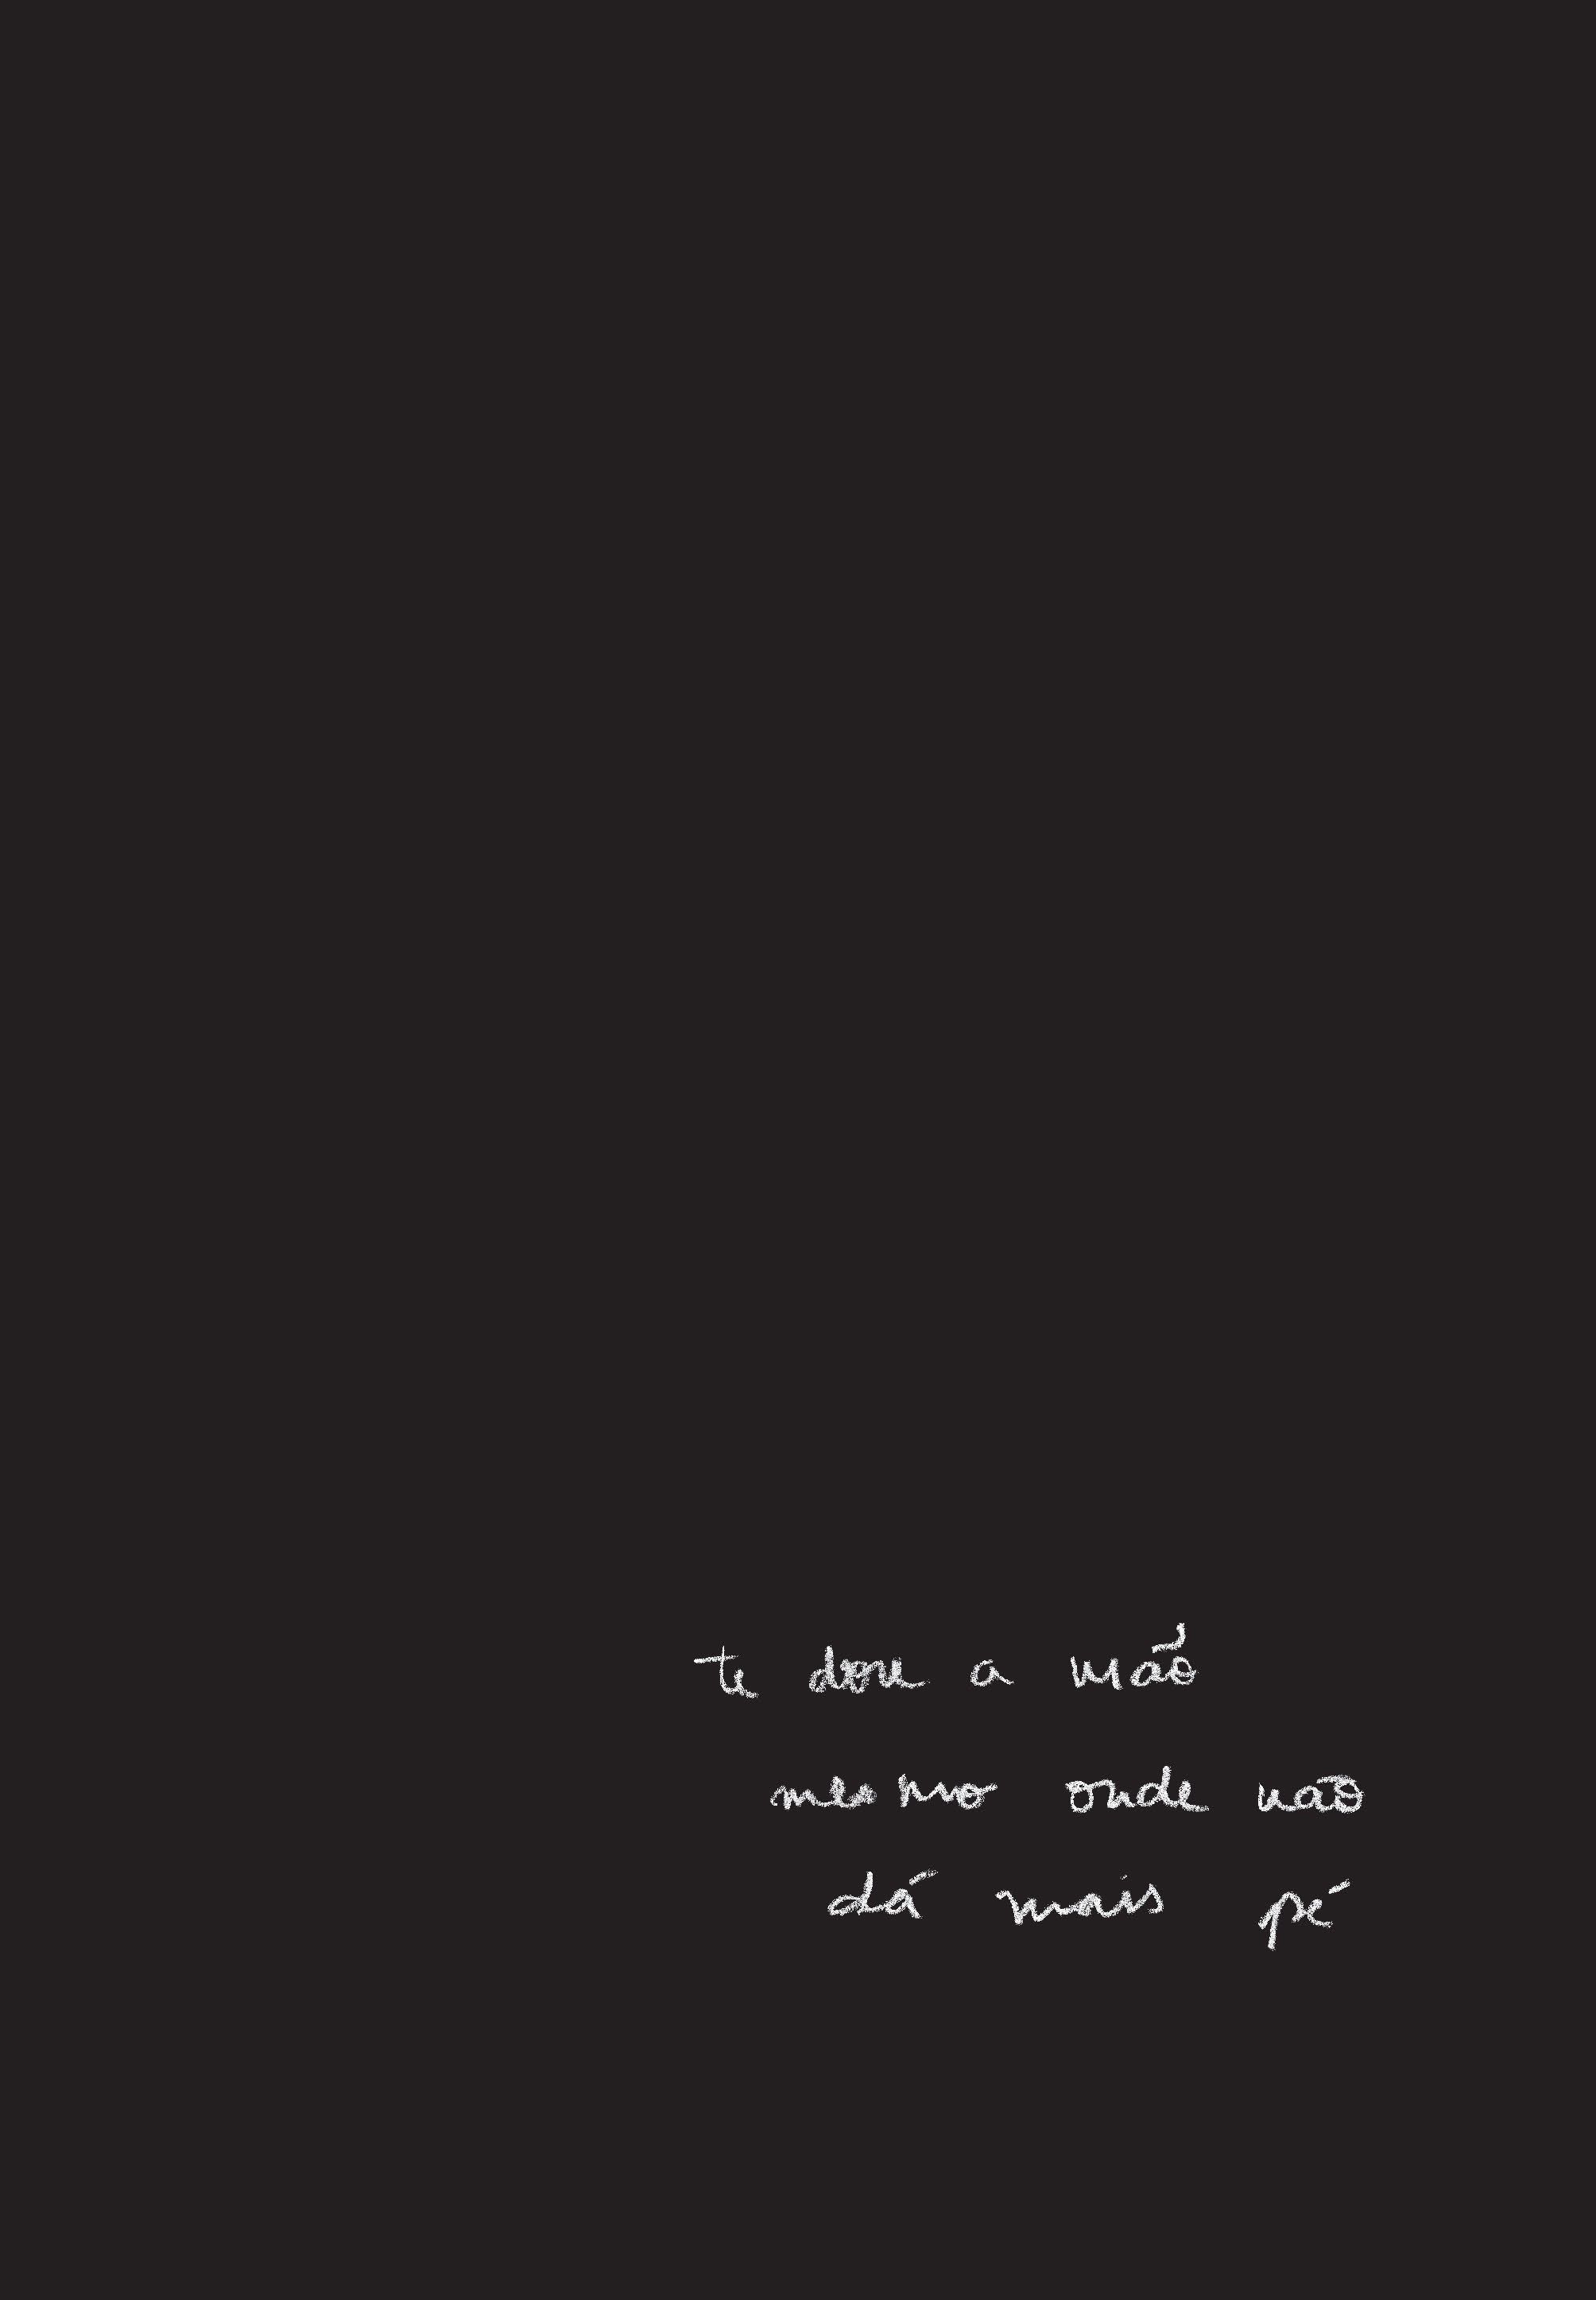 te dou a mão
mesmo onde não
dá mais pé